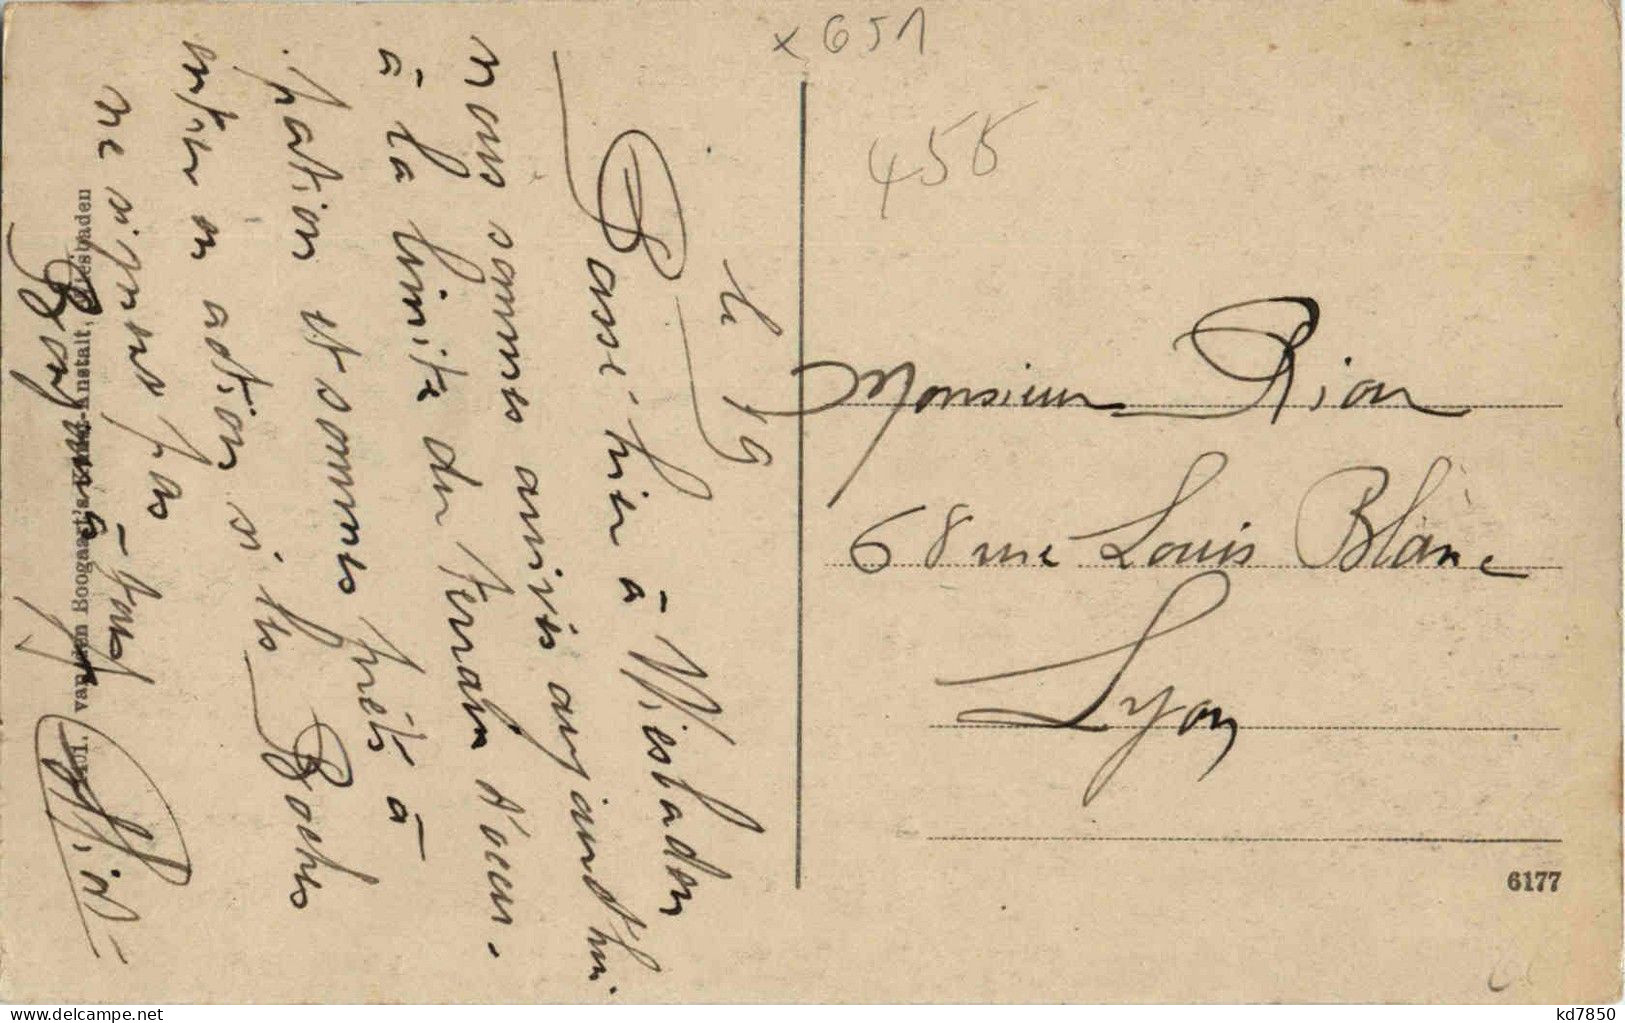 x 651
455
le 19
Passé hier à Wiesbaden
nous sommes arrivés aujourd'hui
à la limite du terrain d'occu-
pation et sommes prêts à
entrer en action si les Boches
ne signent pas
à tous
Monsieur Rion
68 rue Louis Blanc
Lyon
6177
van den Boogaart's Kunst-Anstalt, Wiesbaden
kd7850